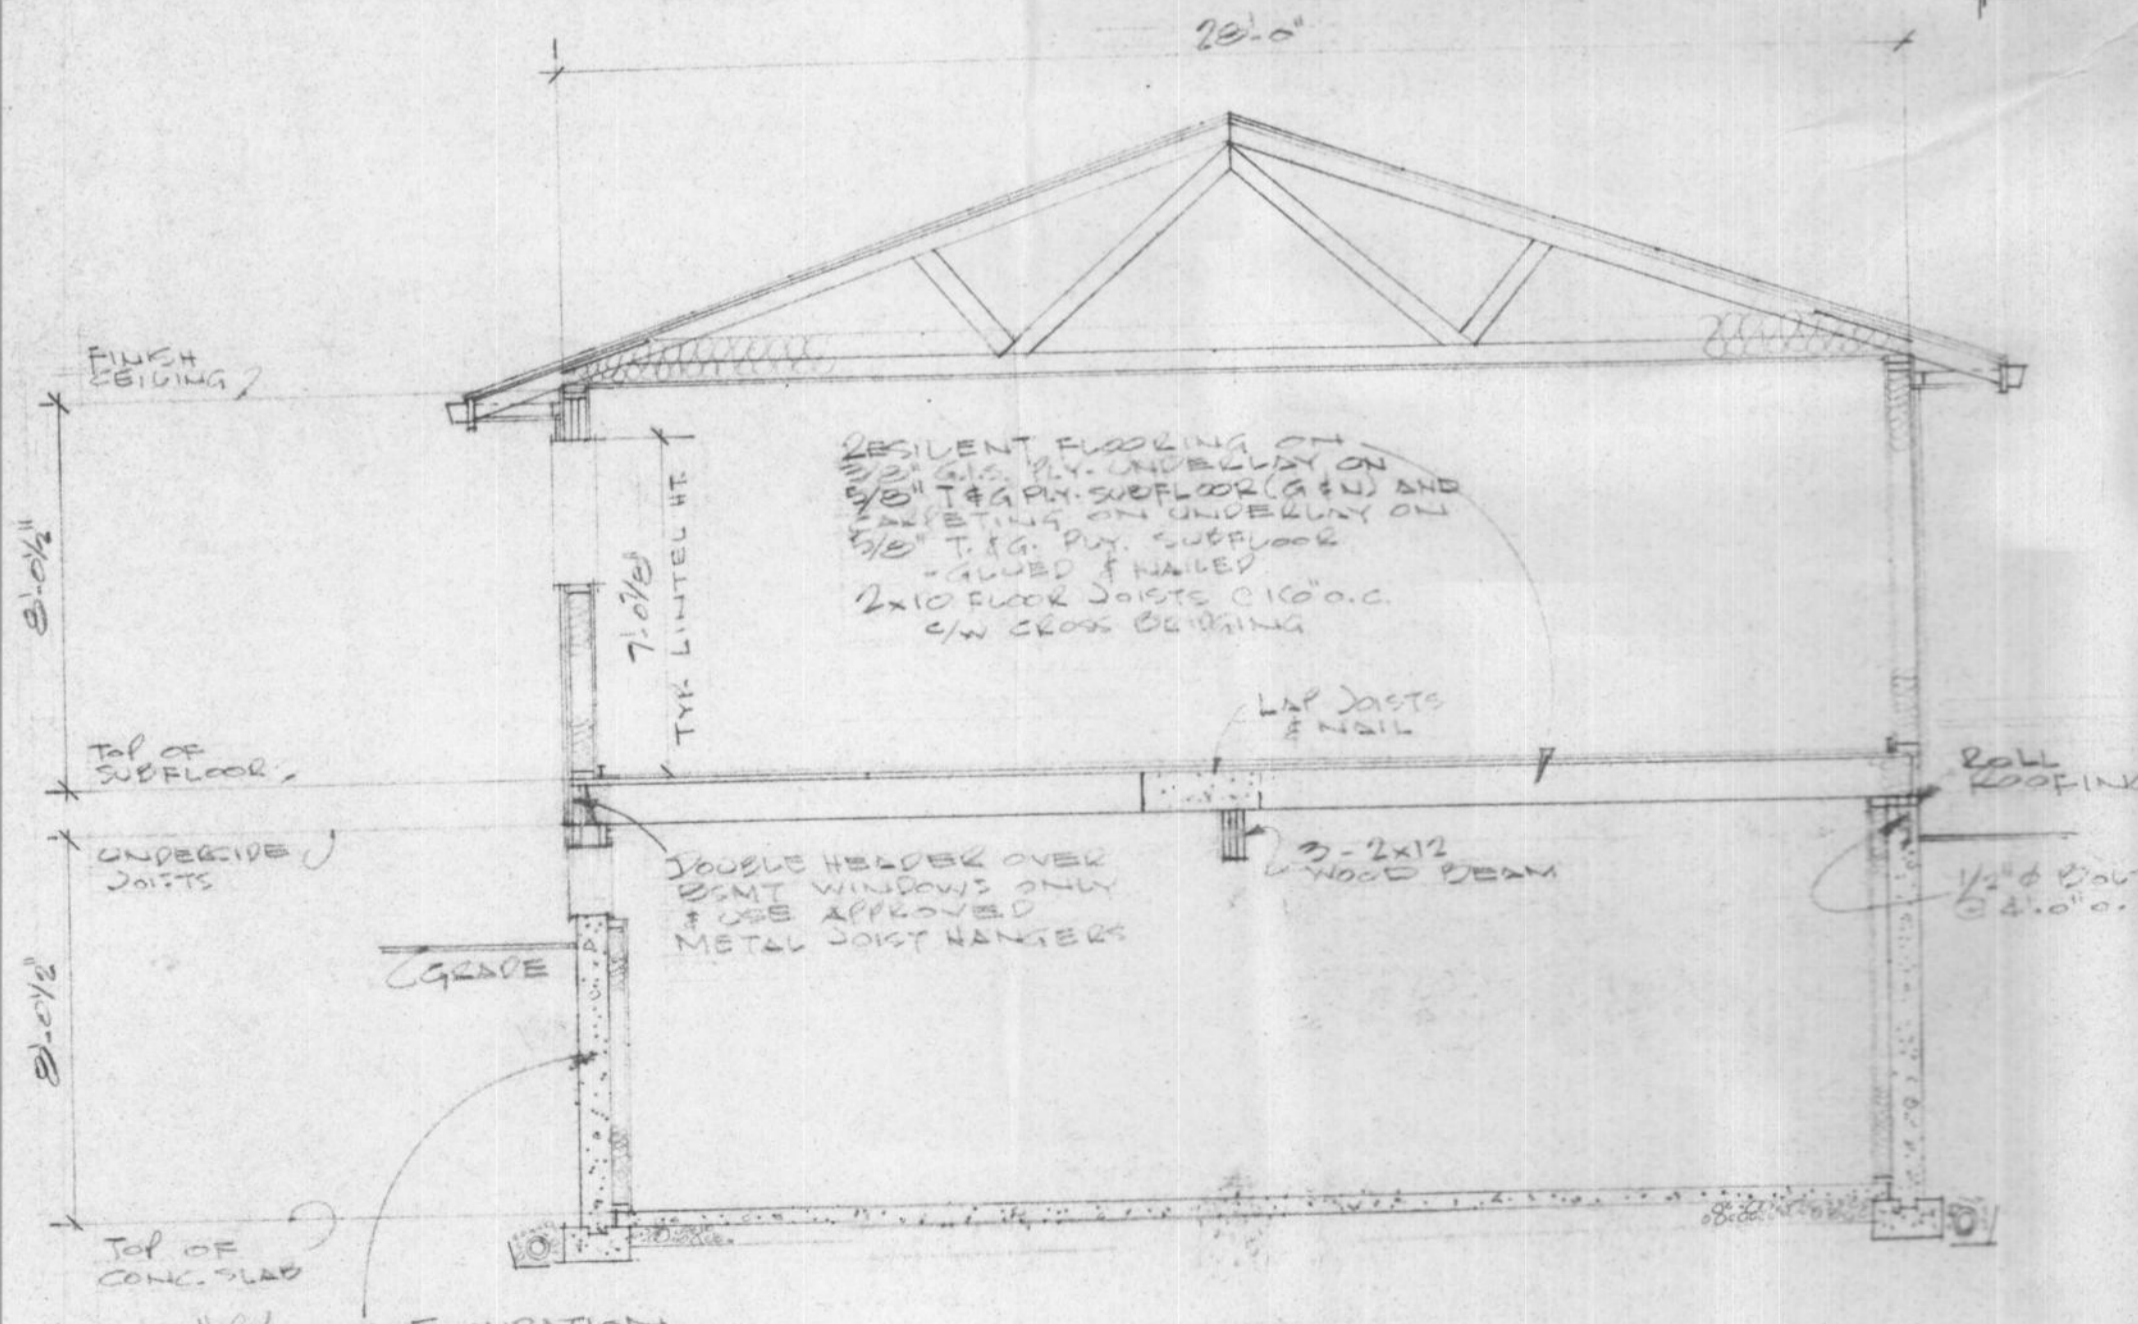 28'-0"
FINISH
CEILING
8'-0½"
7'-0⅛"
TYP. LINTEL HT.
RESILENT FLOORING ON
3/8" G.I.S. PLY. UNDERLAY ON
5/8" T & G PLY. SUBFLOOR (G & N) AND
CARPETING ON UNDERLAY ON
5/8" T. & G. PLY. SUBFLOOR
- GLUED & NAILED
2x10 FLOOR JOISTS @ 16" O.C.
C/W CROSS BRIDGING
LAP JOISTS
& NAIL
TOP OF
SUBFLOOR
ROLL
ROOFING
UNDERSIDE
JOISTS
DOUBLE HEADER OVER
BSMT WINDOWS ONLY
& USE APPROVED
METAL JOIST HANGERS
3 - 2x12
WOOD BEAM
1/2" φ BOL
@ 4'-0" O.
GRADE
8'-0½"
TOP OF
CONC. SLAB
FOUNDATION